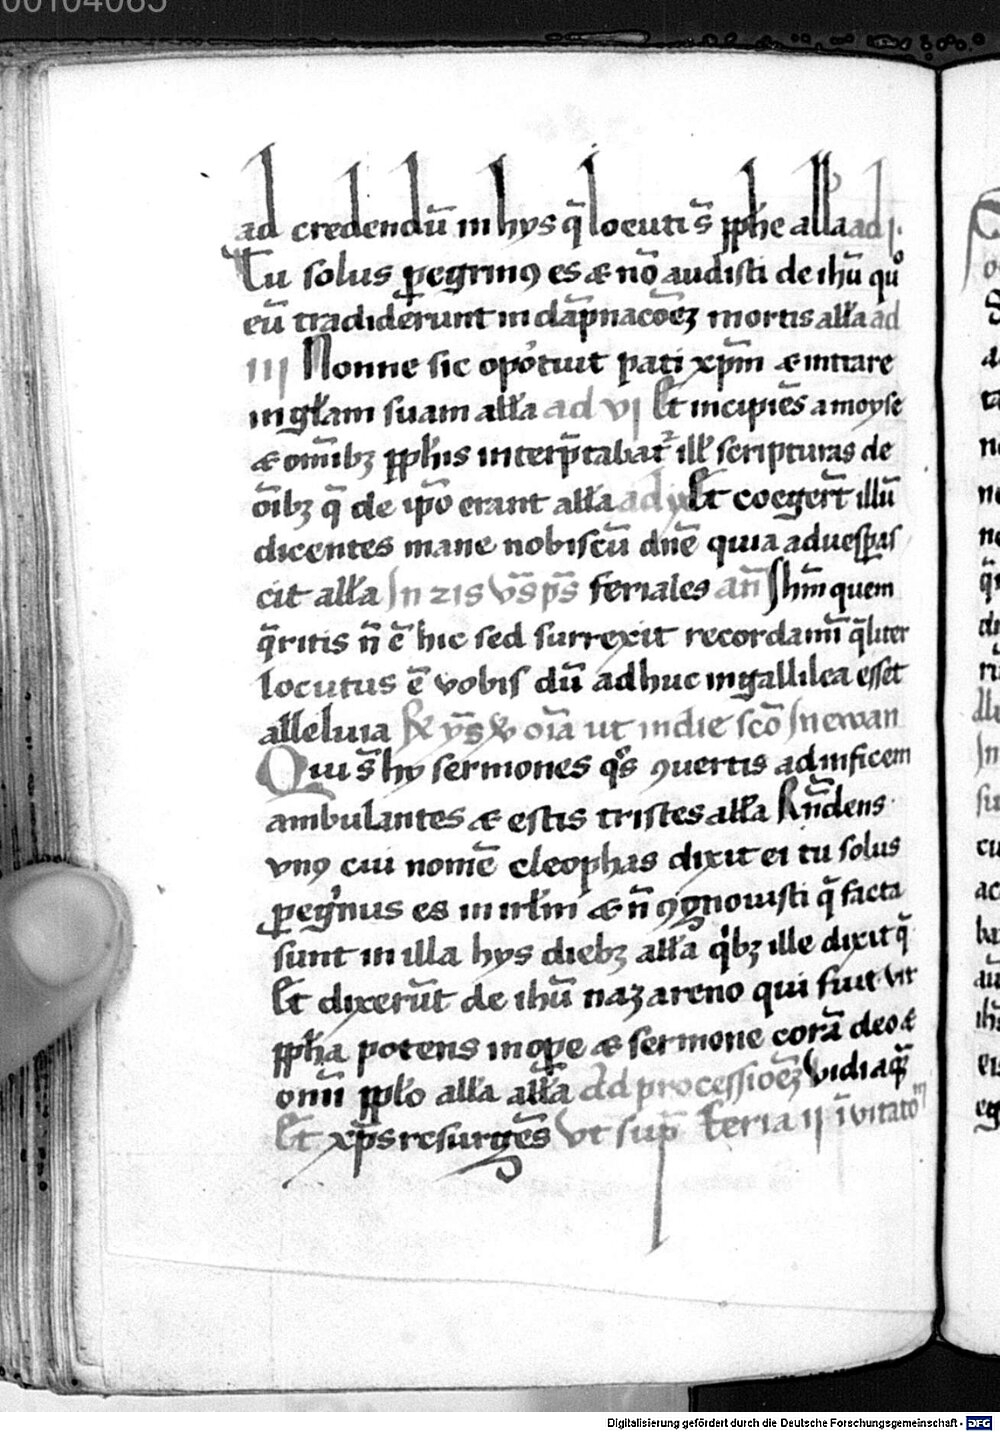 00104085
ad credendū in hys q̄ locuti s̄ ꝓphe alła ad j.
Tu solus ꝑegrinꝯ es & nō audisti de ihū quº
eū tradiderunt in dāpnacōeȝ mortis alła ad
iij Nonne sic opoꝛtuit pati xp̄m & intrare
in gl̄am suam alła ad vj Et incipiēs a moyse
& om̄ibȝ ꝓphis interp̄tabat᷑ ill' scripturas de
ōibȝ q̄ de ip̄o erant alła ad Et coegert̄ illū
dicentes mane nobiscū dn̄e quia aduesꝑas
cit alła In 2is vs̄ps̄ feriales an̄ Ihm̄ quem
q̄ritis n̄ ē hic sed surrexit recordamī qͣliter
locutus ē vobis dū adhuc in gallilea esset
alleluia oīa ut in die scō In ewan
Qui s̄ hy sermones qͦs ꝯuertis ad inficem
ambulantes & estis tristes alła Rn̄dens
vnꝯ cui nomē cleophas dixit ei tu solus
ꝑegͥnus es in irl̄m & n̄ ꝯgnouisti q̄ facta
sunt in illa hys diebȝ alła qͥbȝ ille dixit q̄
Et dixerūt de ihū nazareno qui fuit vir
ꝓpha potens in oꝑe & sermone corā deo &
omī ꝓpło alła alła Ad processioēȝ Vidi aqͣ̄
Et xp̄s resurgēs vt supͣ feria ij īvitatoͫ
Digitalisierung gefördert durch die Deutsche Forschungsgemeinschaft - DFG